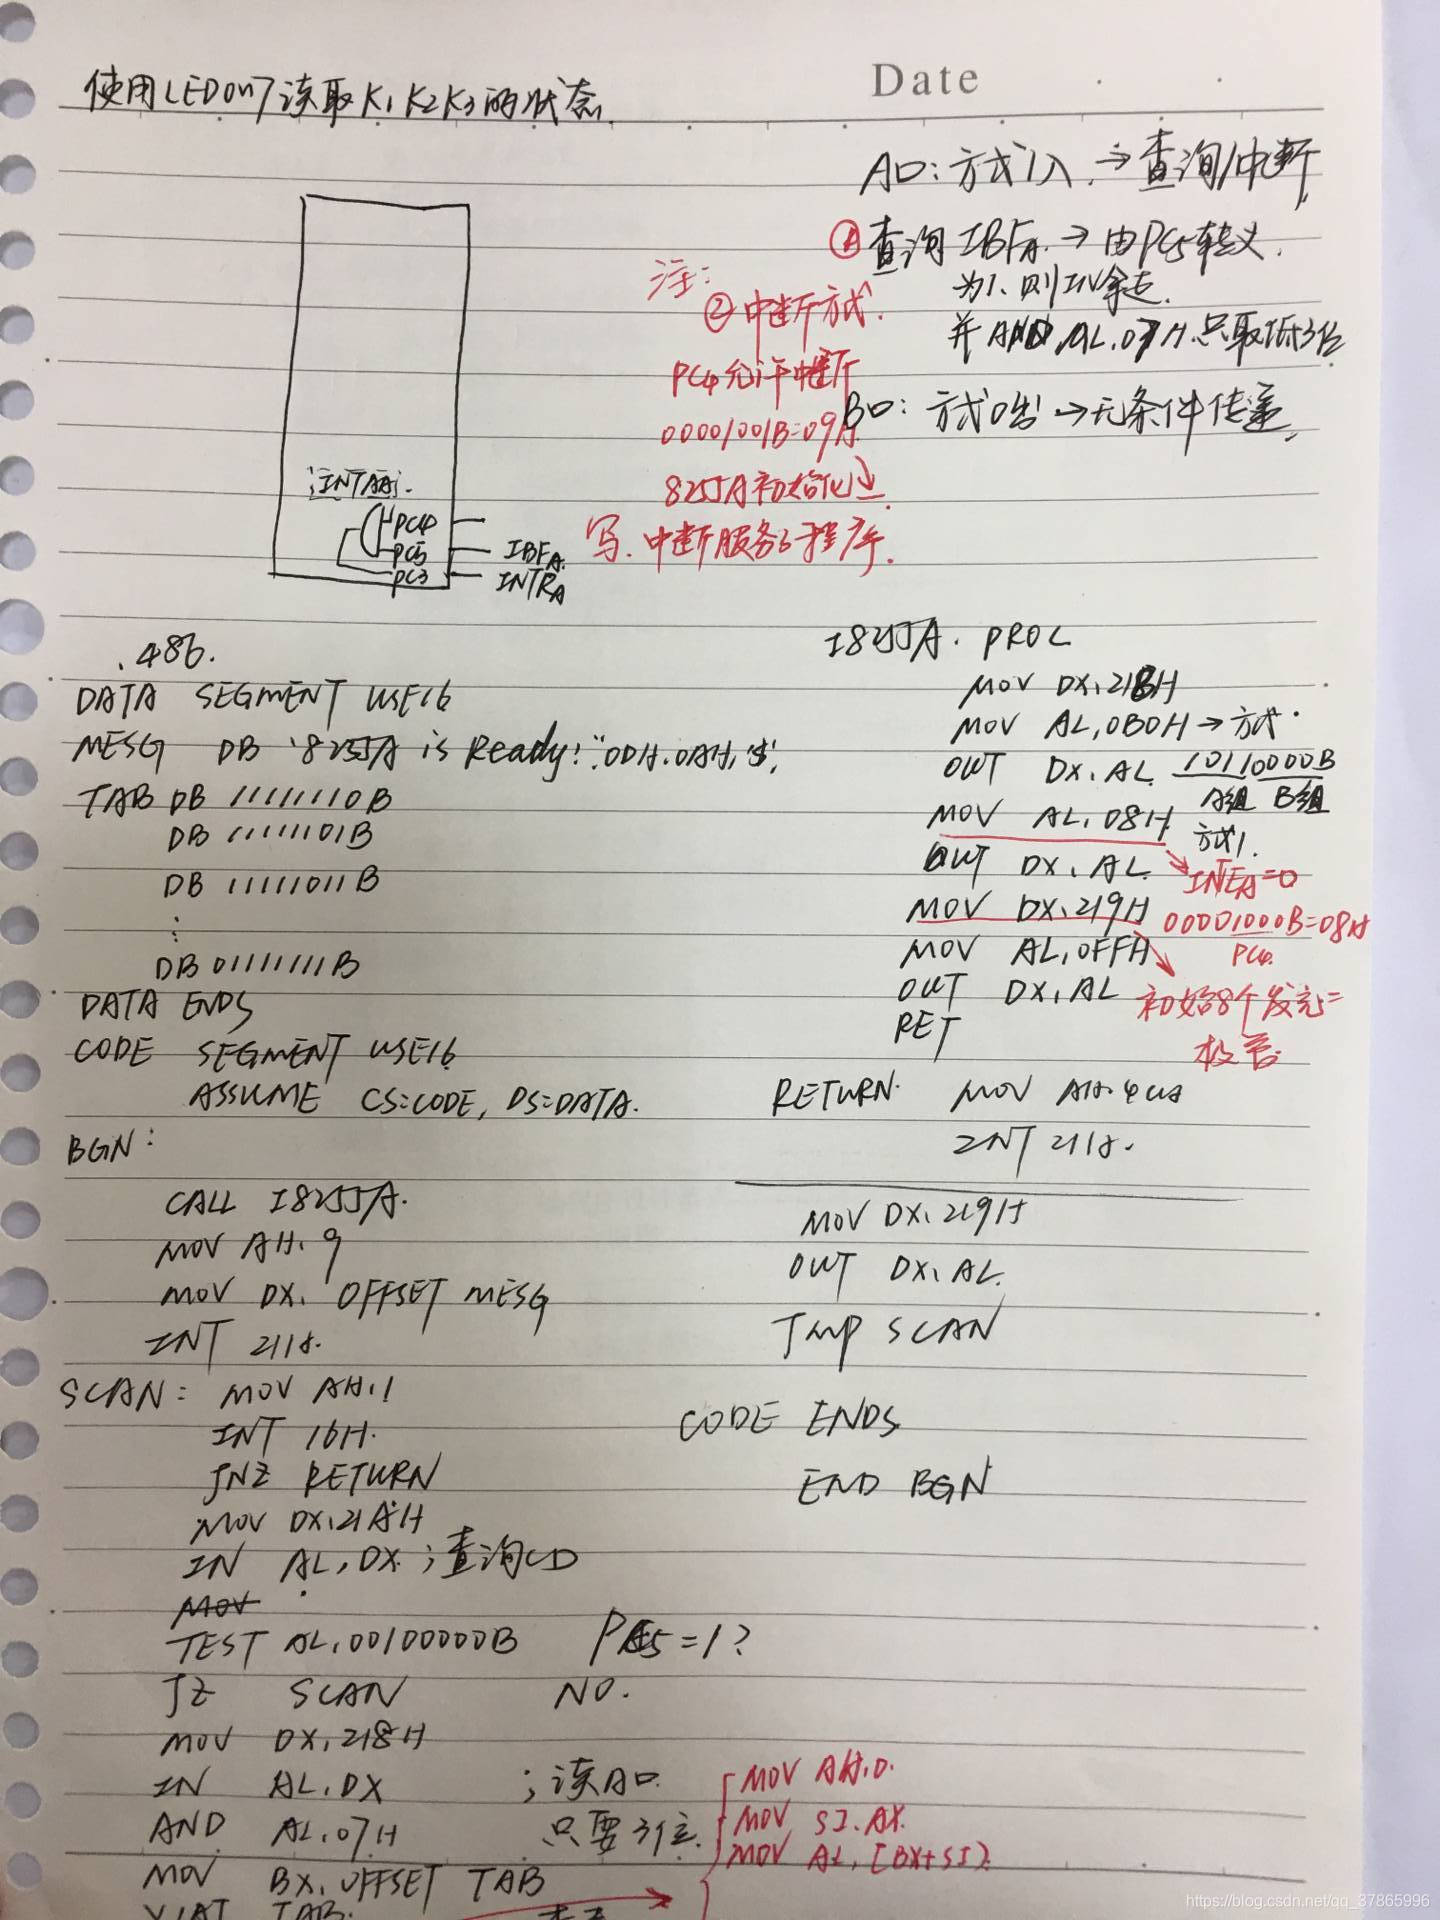 Date
使用LED0~7读取K1K2K3的状态.
A口:方式1入.→查询/中断
①查询IBFA.→由PC5转义.
为1.则IN拿走.
并AND,AL,07H.只取低3位
B口:方式0出→无条件传送.
注:
②中断方式.
PC4允许中断
00001001B=09H
8255A初始化
写.中断服务子程序.
;INTAA;.
PC4
PC5 IBFA
PC3 INTRA
.486.
DATA SEGMENT USE16
MESG DB '8255A is Ready!',0DH,0AH,'$'
TAB DB 11111110B
DB 11111101B
DB 11111011B
⋮
DB 01111111B
DATA ENDS
CODE SEGMENT USE16
ASSUME CS=CODE, DS=DATA.
BGN:
CALL I8255A.
MOV AH,9
MOV DX, OFFSET MESG
INT 21H.
SCAN: MOV AH,1
INT 16H.
JNZ RETURN
MOV DX,21AH
IN AL,DX ;查询CD
MOV
TEST AL,00100000B PC5=1?
JZ SCAN NO.
MOV DX,218H
IN AL,DX ;读A口
AND AL,07H 只要3位.
MOV BX,OFFSET TAB
XLAT TAB.
MOV AH,0.
MOV SI,AX.
MOV AL,[BX+SI]
I8255A. PROC
MOV DX,21BH
MOV AL,0B0H→方式.
OUT DX,AL 10110000B
A组 B组
MOV AL,08H 方式1.
OUT DX,AL INTEA=0
MOV DX,219H 00001000B=08H
PC4.
MOV AL,0FFH
OUT DX,AL 初始8个发光二
极管.
RET
RETURN. MOV AH,4CH
INT 21H.
MOV DX,219H
OUT DX,AL.
JMP SCAN
CODE ENDS
END BGN
https://blog.csdn.net/qq_37865996